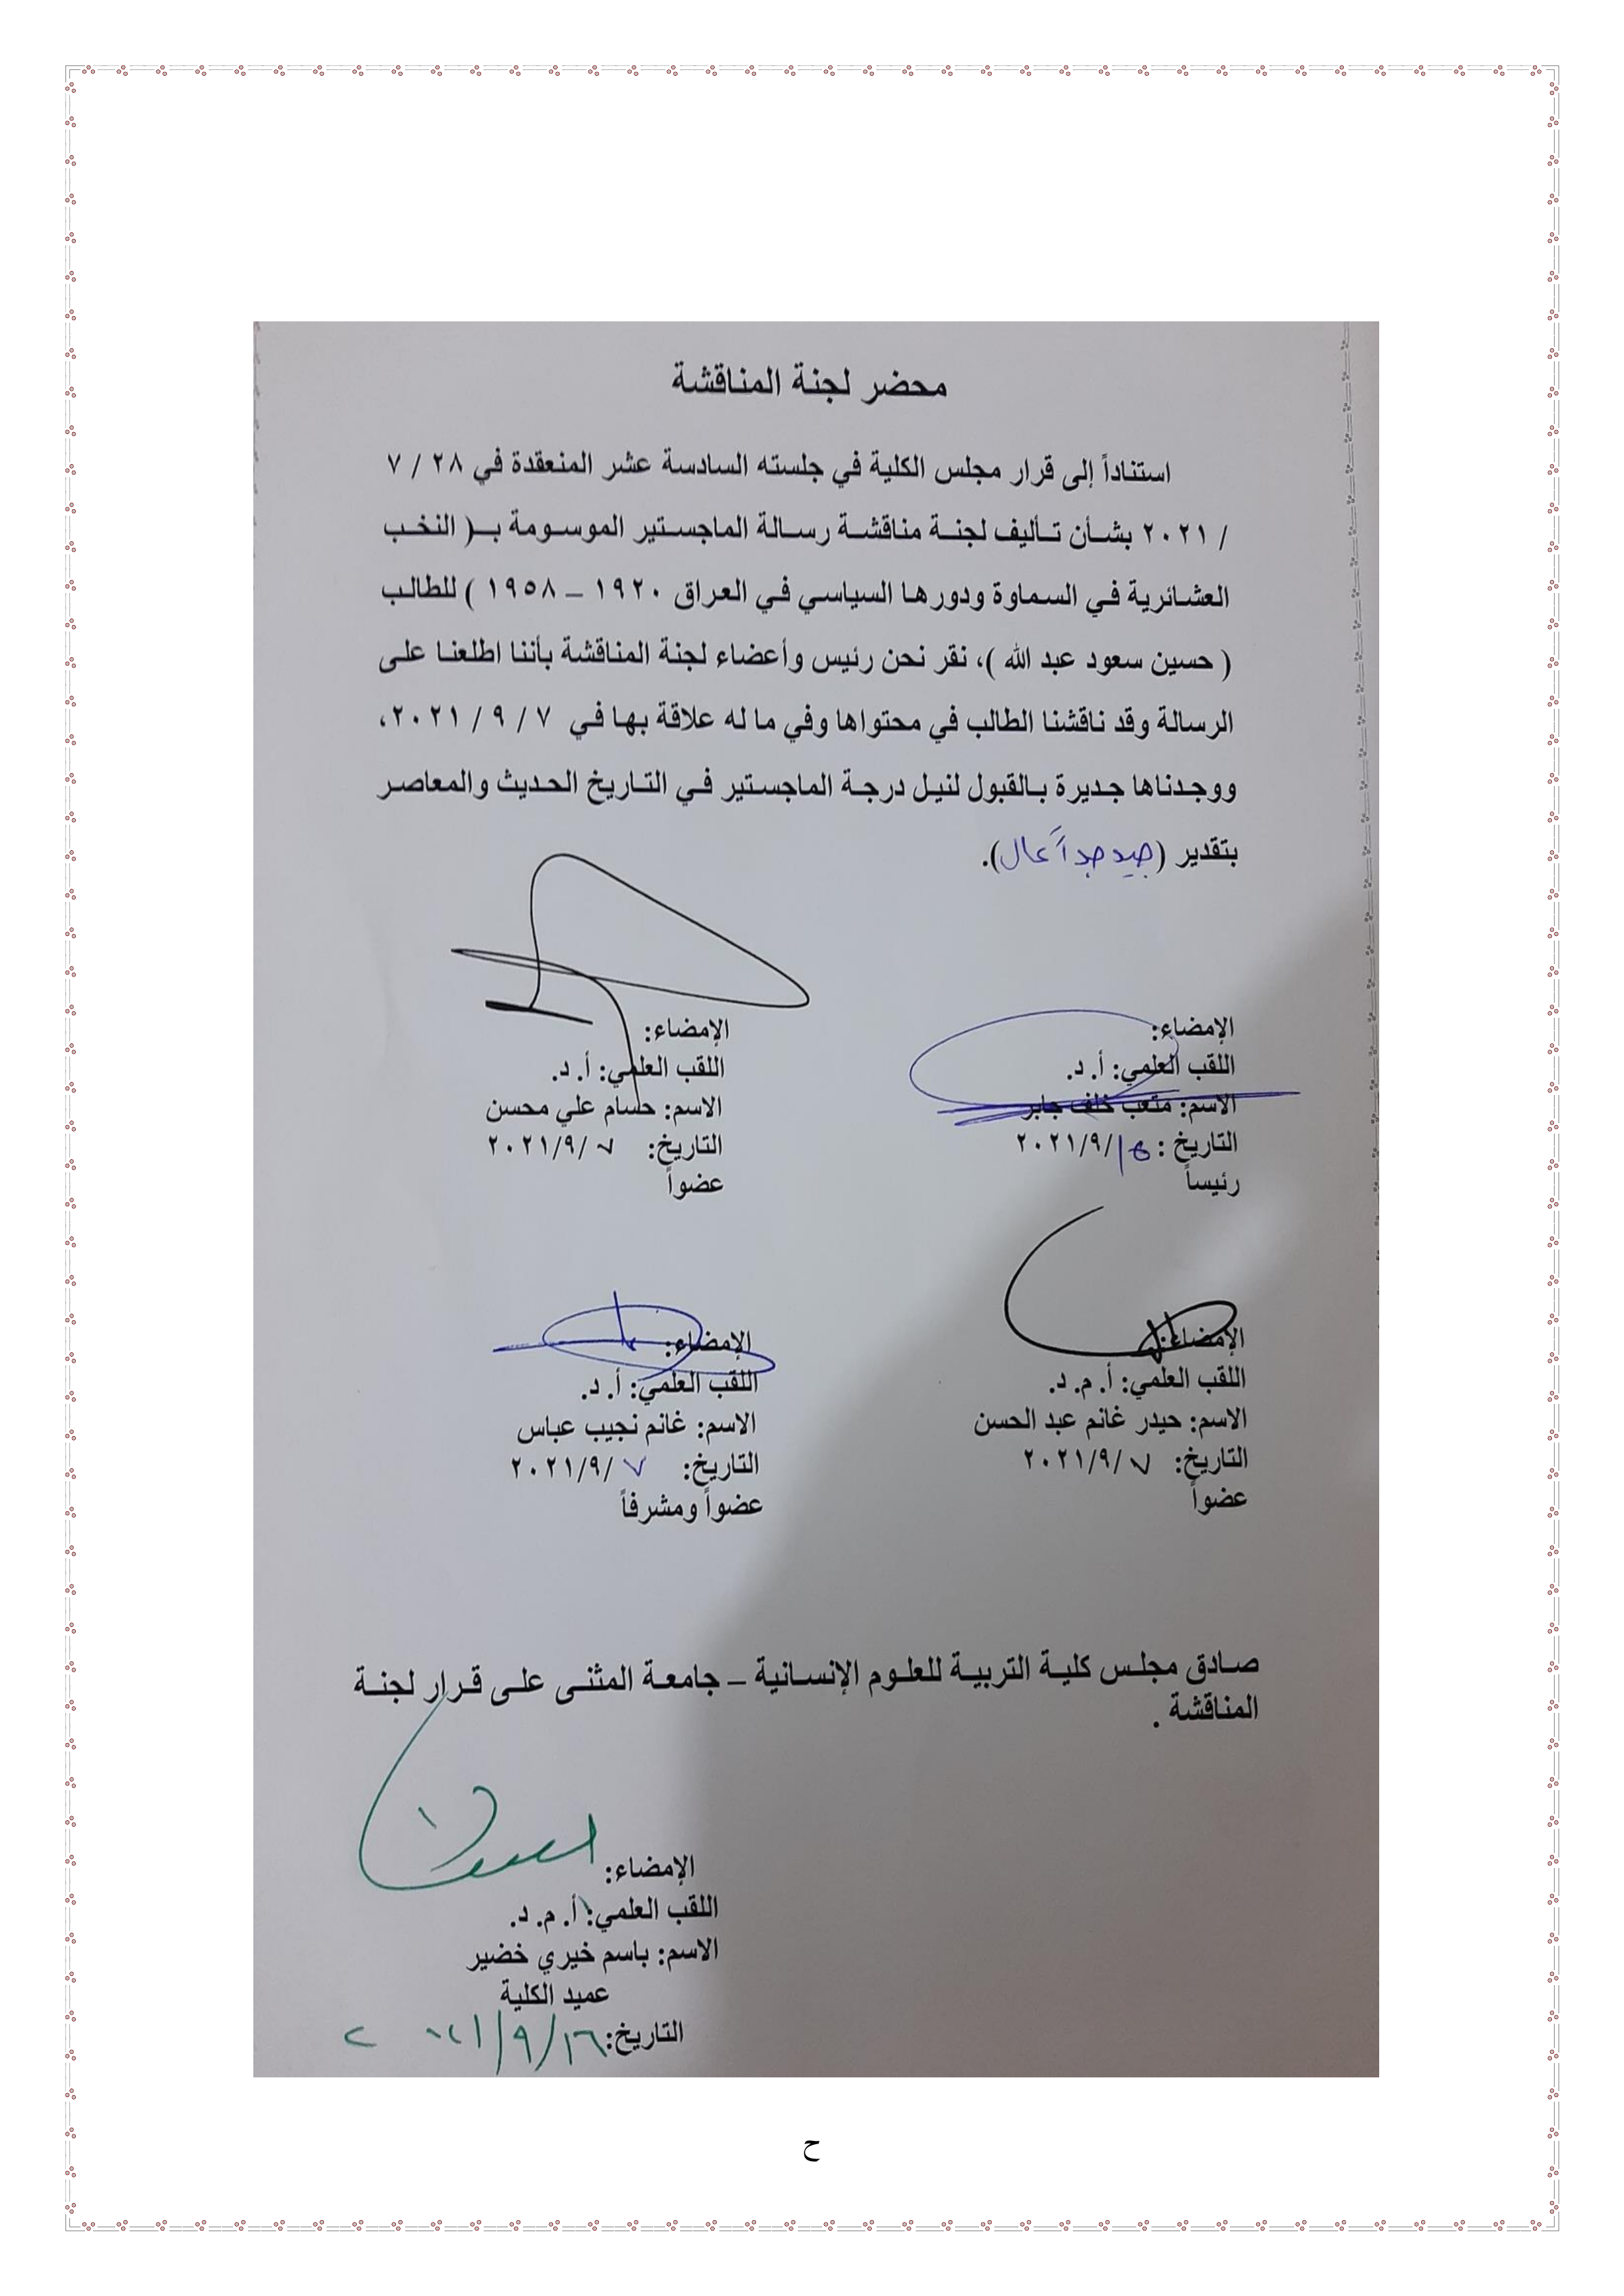 محضر لجنة المناقشة
استناداً إلى قرار مجلس الكلية في جلسته السادسة عشر المنعقدة في ٢٨ / ٧
/ ٢٠٢١ بشأن تأليف لجنة مناقشة رسالة الماجستير الموسومة بـ( النخب
العشائرية في السماوة ودورها السياسي في العراق ١٩٢٠ – ١٩٥٨ ) للطالب
( حسين سعود عبد الله )، نقر نحن رئيس وأعضاء لجنة المناقشة بأننا اطلعنا على
الرسالة وقد ناقشنا الطالب في محتواها وفي ما له علاقة بها في ٧ / ٩ / ٢٠٢١،
ووجدناها جديرة بالقبول لنيل درجة الماجستير في التاريخ الحديث والمعاصر
بتقدير (جيد جداً عال).
الإمضاء:
اللقب العلمي: أ. د.
الاسم: متعب خلف جابر
التاريخ : ١٥/٩/٢٠٢١
رئيساً
الإمضاء:
اللقب العلمي: أ. د.
الاسم: حسام علي محسن
التاريخ: ٧/٩/٢٠٢١
عضواً
الإمضاء:
اللقب العلمي: أ. م. د.
الاسم: حيدر غانم عبد الحسن
التاريخ: ٧/٩/٢٠٢١
عضواً
الإمضاء:
اللقب العلمي: أ. د.
الاسم: غانم نجيب عباس
التاريخ: ٧/٩/٢٠٢١
عضواً ومشرفاً
صادق مجلس كلية التربية للعلوم الإنسانية – جامعة المثنى على قرار لجنة
المناقشة .
الإمضاء:
اللقب العلمي: أ. م. د.
الاسم: باسم خيري خضير
عميد الكلية
التاريخ: ١٦/٩/٢٠٢١
ح